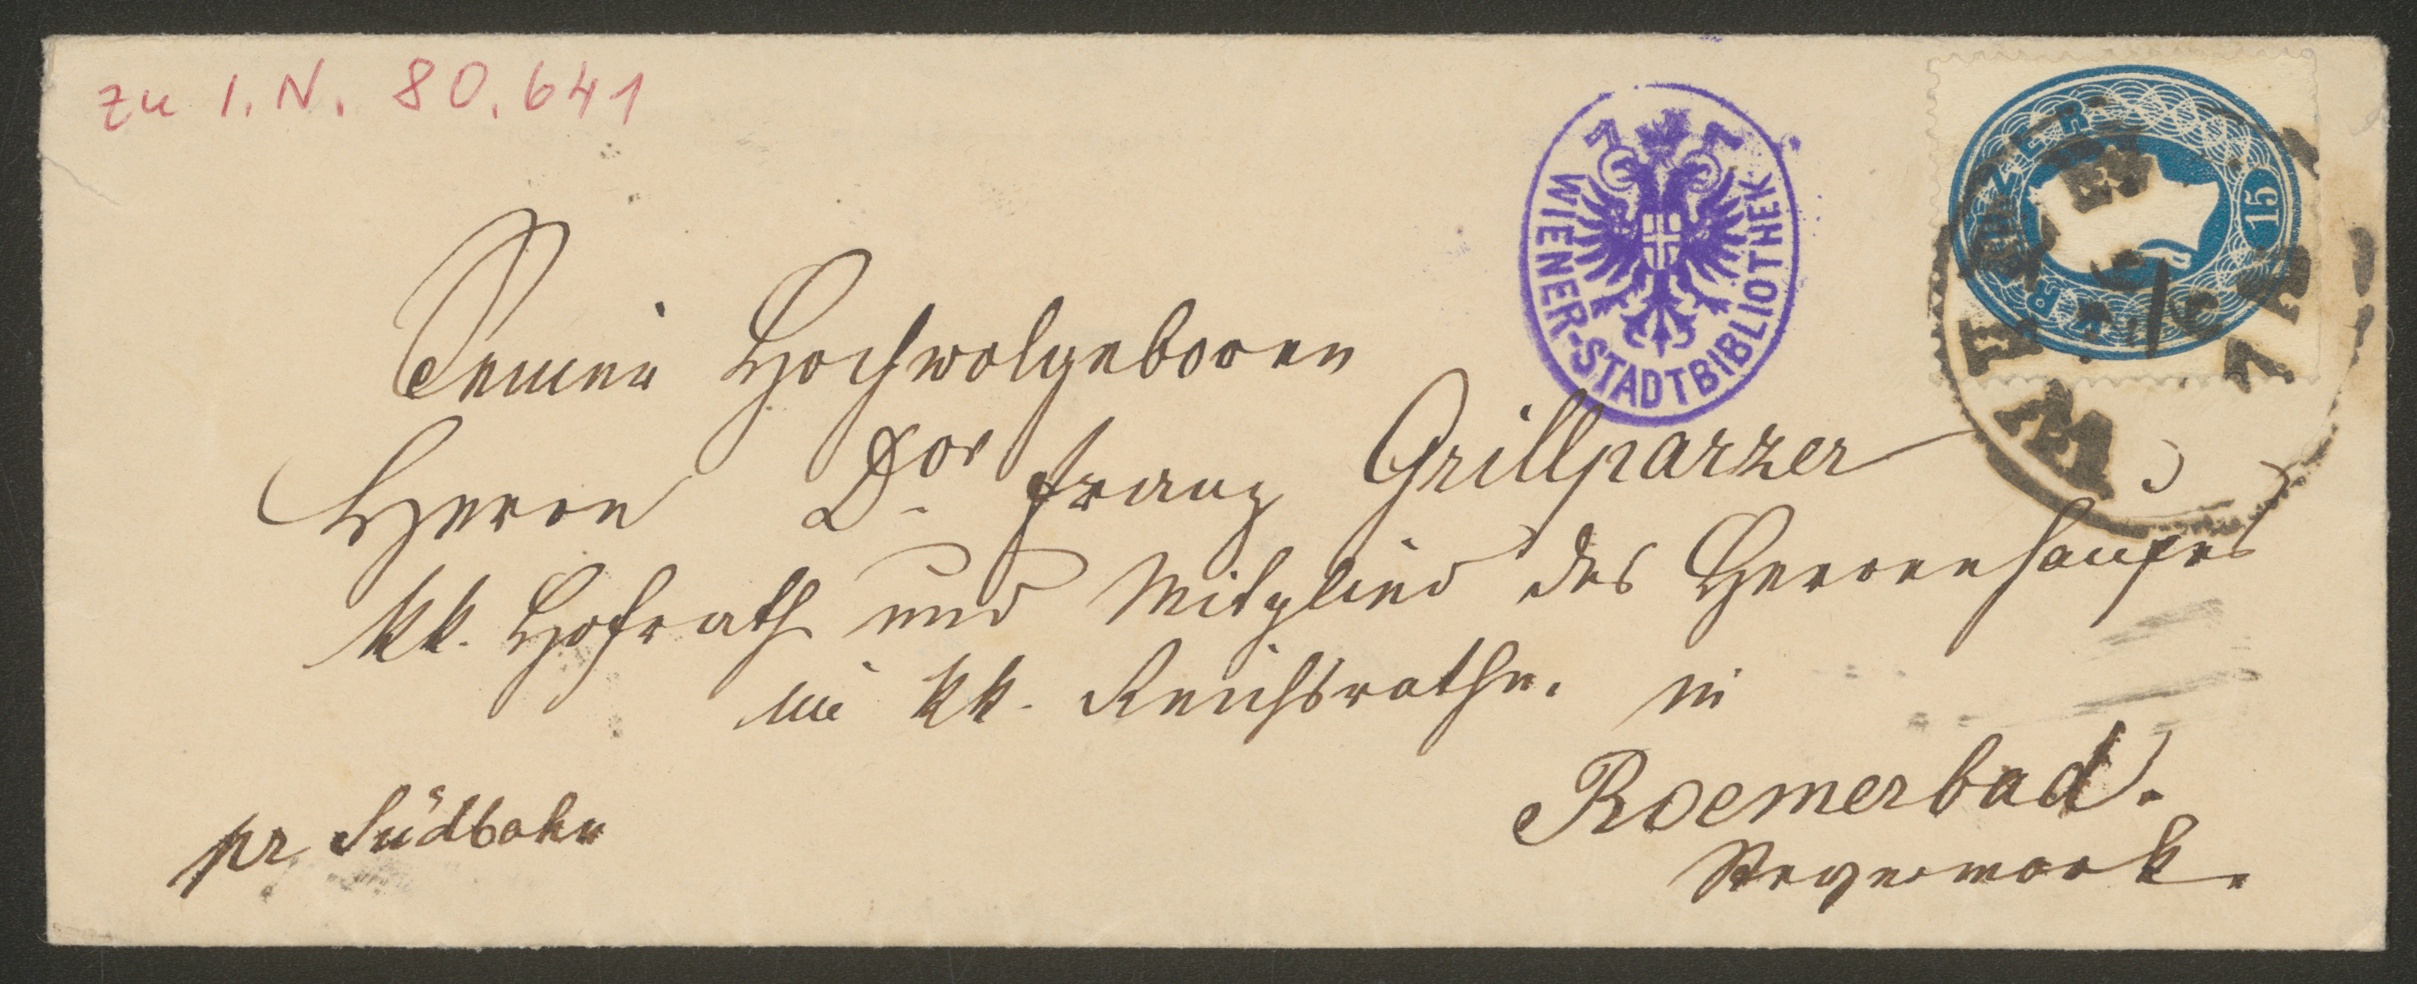 zu I.N. 80.641
WIENER-STADTBIBLIOTHEK
KREUZER
15
WIEN
Seiner Hochwolgeboren
Herrn Dor. Franz Grillparzer
kk. Hofrath und Mitglied des Herrenhauses
im kk. Reichsrathe. in
Roemerbad.
pr Südbahn
Steyermark.